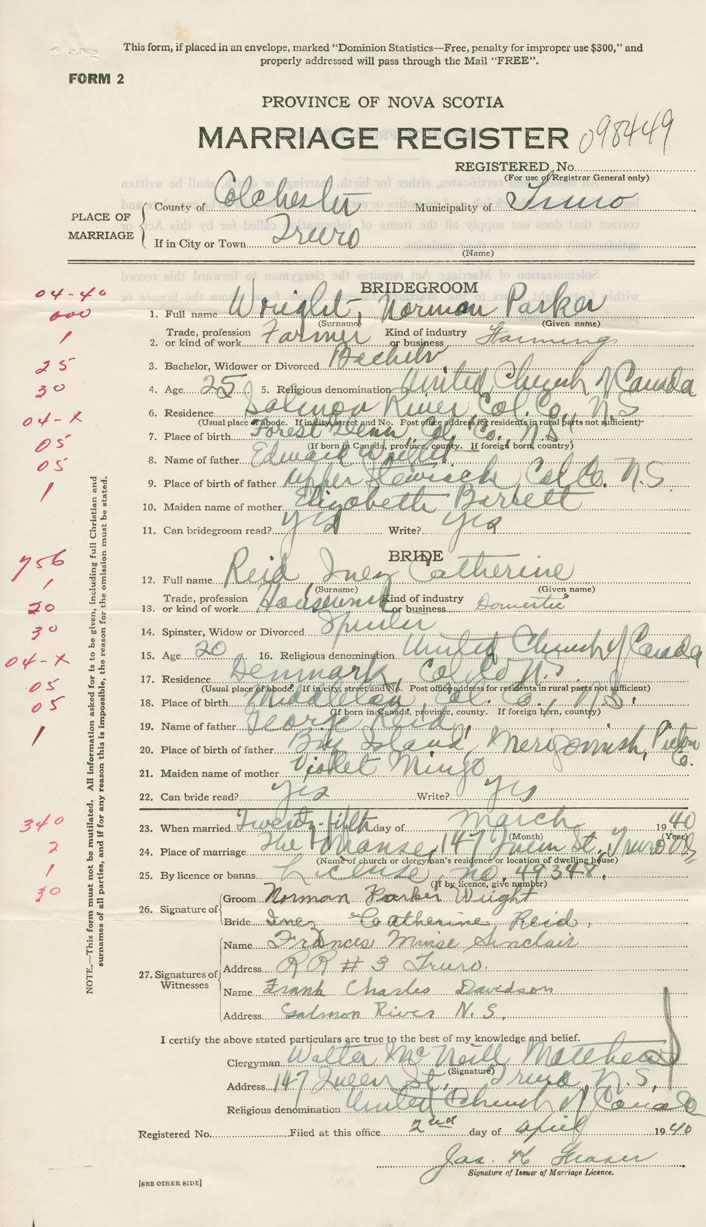 This form, if placed in an envelope, marked "Dominion Statistics—Free, penalty for improper use $300," and
properly addressed will pass through the Mail "FREE".
FORM 2
PROVINCE OF NOVA SCOTIA
MARRIAGE REGISTER 098449
REGISTERED No.
(For use of Registrar General only)
PLACE OF MARRIAGE
County of Colchester Municipality of Truro
If in City or Town Truro
(Name)
BRIDEGROOM
04-40
000 1. Full name Wright, Norman Parker
(Surname) (Given name)
1 2. Trade, profession or kind of work Farmer Kind of industry or business Farming
25 3. Bachelor, Widower or Divorced Bachelor
30 4. Age 25 5. Religious denomination United Church of Canada
04-X 6. Residence Salmon River, Col. Co., N.S.
(Usual place of abode. If in city, street and No. Post office address for residents in rural parts not sufficient)
05 7. Place of birth Forest Glenn, Col. Co. N.S.
(If born in Canada, province, county. If foreign born, country)
05 8. Name of father Edward Wright
1 9. Place of birth of father Upper Col. Co. N.S.
10. Maiden name of mother Elizabeth Barrett
11. Can bridegroom read? Yes Write? Yes
BRIDE
756 12. Full name Reid Inez Catherine
(Surname) (Given name)
1 13. Trade, profession or kind of work Housework Kind of industry or business Domestic
20 14. Spinster, Widow or Divorced
30 15. Age 20 16. Religious denomination United Church of Canada
04-X 17. Residence Denmark, Col. Co N.S.
(Usual place of abode. If in city, street and No. Post office address for residents in rural parts not sufficient)
05 18. Place of birth Middleton, Col. Co., N.S.
(If born in Canada, province, county. If foreign born, country)
05 19. Name of father George Reid
1 20. Place of birth of father Big Island, Merigomish, Pictou Co.
21. Maiden name of mother Violet Mingo
22. Can bride read? Yes Write? Yes
340 23. When married Twenty-fifth day of March 1940
(Month) (Year)
2 24. Place of marriage The Manse, 147 Queen St. Truro N.S.
(Name of church or clergyman's residence or location of dwelling house)
1 25. By licence or banns License, no. 49348.
(If by licence, give number)
30 26. Signature of Groom Norman Parker Wright
Bride Inez Coatherine Reid,
27. Signatures of Witnesses
Name Frances Sinclair
Address RR # 3 Truro.
Name Frank Charles Davidson
Address Salmon River N.S.
I certify the above stated particulars are true to the best of my knowledge and belief.
Clergyman Walter McNeill Matthews
(Signature)
Address 147 Queen St., Truro, N.S.
Religious denomination United Church of Canada
Registered No. Filed at this office 2nd day of April 1940
Jas. K Fraser
Signature of Issuer of Marriage Licence.
[SEE OTHER SIDE]
NOTE.—This form must not be mutilated. All information asked for is to be given, including full Christian and
surnames of all parties, and if for any reason this is impossible, the reason for the omission must be stated.